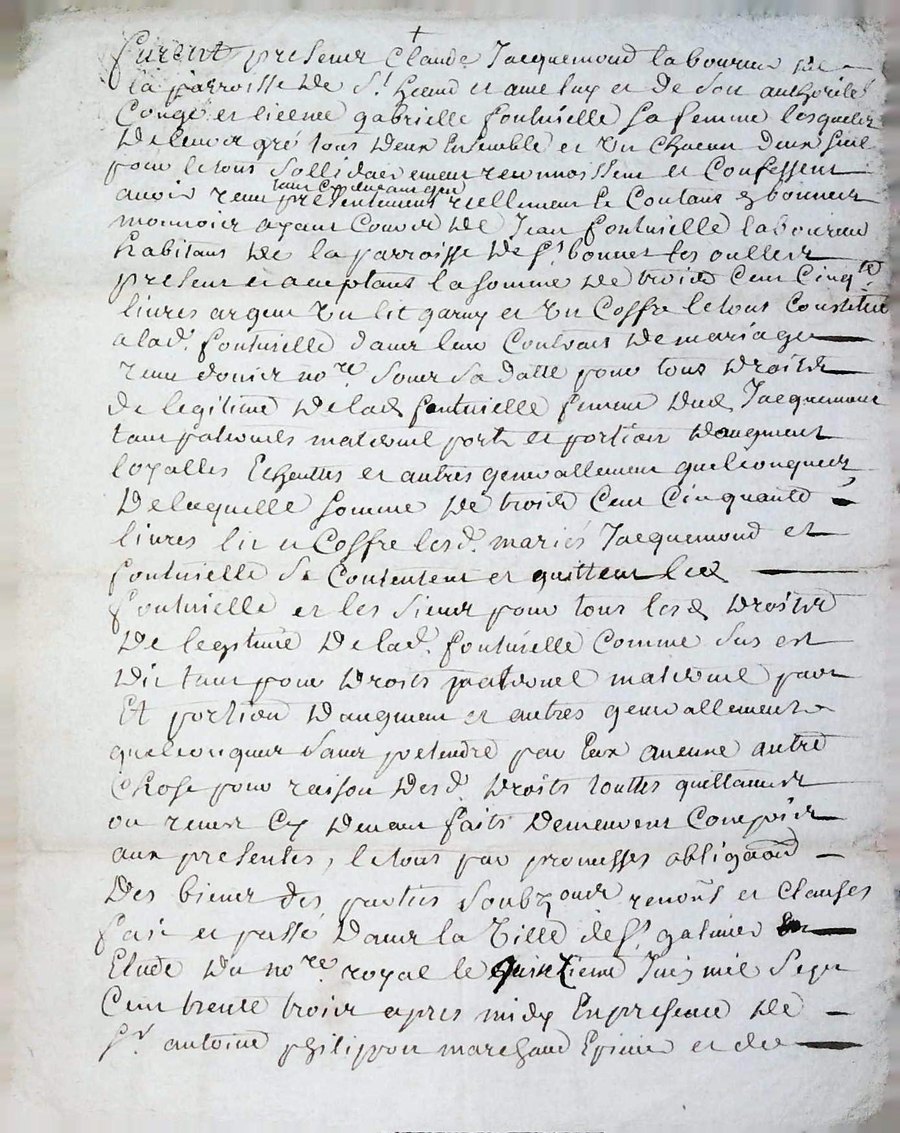 +
furent presens Claude Jacquemond laboureur de
la parroisse de St heand et avec luy et de son authorité
Congé et licence gabrielle fontvielle sa femme lesquels
de leur gré tous deux ensemble et un chacun deux seul
pour le tous sollidairement reconnoissent et Confessent
tant cy devant que
avoir receu presentement reellement Contant et bonnes
monnoie ayant Cours de Jean fontvielle laboureur
habitant de la parroisse de St bonnet les oulles
present et acceptant la somme de trois Cent Cinqte
livres argent un lit garny et un Coffre le tous Constitué
a lad. fontvielle dans leur Contract de mariage
receu nore. sous sa datte pour tous droits
de legitime de lad fontvielle femme dud Jacquemond
tant paternels maternel part et portion daugment
loyalles Echeuttes et autres generallement quelconques
de laquelle somme de trois Cent Cinquante
livres lit et Coffre lesd. mariés Jacquemond et
fontvielle se Contentent et quittent led
fontvielle et les siens pour tous lesd droits
de legitime de lad. fontvielle comme sus est
dit tant pour droits paternel maternel part
Et portion daugment et autres generallement
quelconques sans pretendre par Eux aucune autre
Chose pour raison desd. droits touttes quittances
ou receus Cy devant faits demeurent Compris
aux presentes, le tous par promesses obligaõn
des biens des parties renons et clauses
fait et passé dans la Ville de St galmier
Etude du nore royal le quinzieme Juin mil sept
Cent trente trois apres midy En presence de
Sr antoine philippon marchand Epicier et de